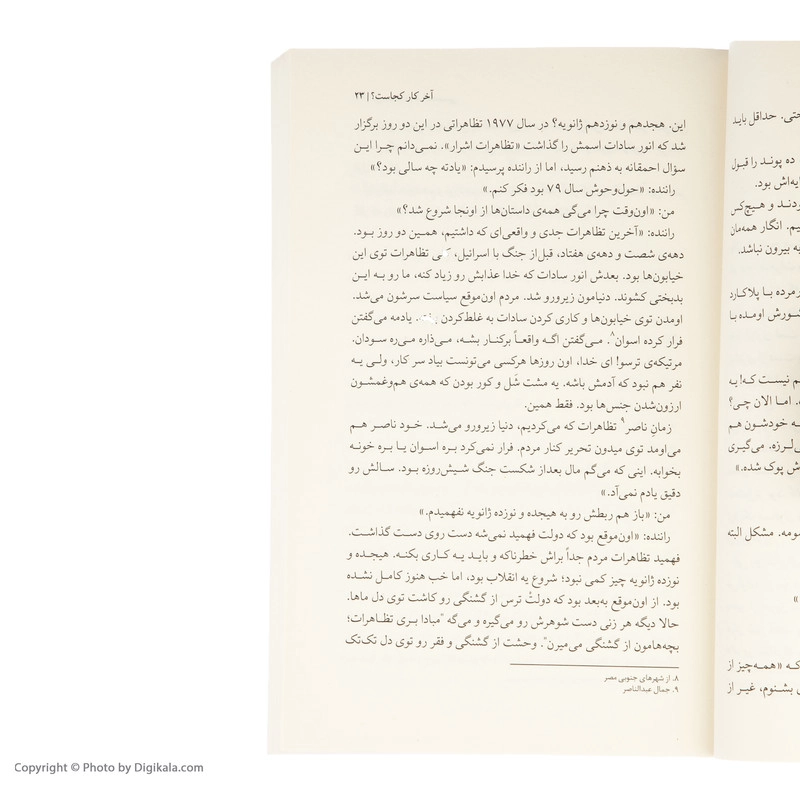 آخر کار کجاست؟ | ۲۳
این. هجدهم و نوزدهم ژانویه؟ در سال ۱۹۷۷ تظاهراتی در این دو روز برگزار
شد که انور سادات اسمش را گذاشت «تظاهرات اشرار». نمی‌دانم چرا این
سؤال احمقانه به ذهنم رسید، اما از راننده پرسیدم: «یادته چه سالی بود؟»
راننده: «حول‌وحوش سال ۷۹ بود فکر کنم.»
من: «اون‌وقت چرا می‌گی همه‌ی داستان‌ها از اونجا شروع شد؟»
راننده: «آخرین تظاهرات جدی و واقعی‌ای که داشتیم، همین دو روز بود.
دهه‌ی شصت و دهه‌ی هفتاد، قبل‌از جنگ با اسرائیل، کلی تظاهرات توی این
خیابون‌ها بود. بعدش انور سادات که خدا عذابش رو زیاد کنه، ما رو به این
بدبختی کشوند. دنیامون زیرورو شد. مردم اون‌موقع سیاست سرشون می‌شد.
اومدن توی خیابون‌ها و کاری کردن سادات به غلط‌کردن یادمه می‌گفتن
فرار کرده اسوان۸. می‌گفتن اگه واقعاً برکنار بشه، می‌ذاره می‌ره سودان.
مرتیکه‌ی ترسو! ای خدا، اون روزها هرکسی می‌تونست بیاد سر کار، ولی یه
نفر هم نبود که آدمش باشه. یه مشت شَل و کور بودن که همه‌ی هم‌وغمشون
ارزون‌شدن جنس‌ها بود. فقط همین.
زمانِ ناصر۹ تظاهرات که می‌کردیم، دنیا زیرورو می‌شد. خود ناصر هم
می‌اومد توی میدون تحریر کنار مردم. فرار نمی‌کرد بره اسوان یا بره خونه
بخوابه. اینی که می‌گم مال بعداز شکست جنگ شیش‌روزه بود. سالش رو
دقیق یادم نمی‌آد.»
من: «باز هم ربطش رو به هیجده و نوزده ژانویه نفهمیدم.»
راننده: «اون‌موقع بود که دولت فهمید نمی‌شه دست روی دست گذاشت.
فهمید تظاهرات مردم جداً براش خطرناکه و باید یه کاری بکنه. هیجده و
نوزده ژانویه چیز کمی نبود؛ شروع یه انقلاب بود، اما خب هنوز کامل نشده
بود. از اون‌موقع به‌بعد بود که دولتْ ترس از گشنگی رو کاشت توی دل ماها.
حالا دیگه هر زنی دست شوهرش رو می‌گیره و می‌گه "مبادا بری تظاهرات؛
بچه‌هامون از گشنگی می‌میرن". وحشت از گشنگی و فقر رو توی دل تک‌تک
۸. از شهرهای جنوبی مصر
۹. جمال عبدالناصر
حتی. حداقل باید
ده پوند را قبول
ایه‌اش بود.
ردند و هیچ‌کس
یم. انگار همه‌مان
به بیرون نباشد.
رمرده با پلاکارد
شورش اومده با
م نیست که! یه
. اما الان چی؟
ه خودشون هم
ی‌لرزه. می‌گیری
ش پوک شده.»
ومه. مشکل البته
»
که «همه‌چیز از
ی بشنوم، غیر از
Copyright © Photo by Digikala.com